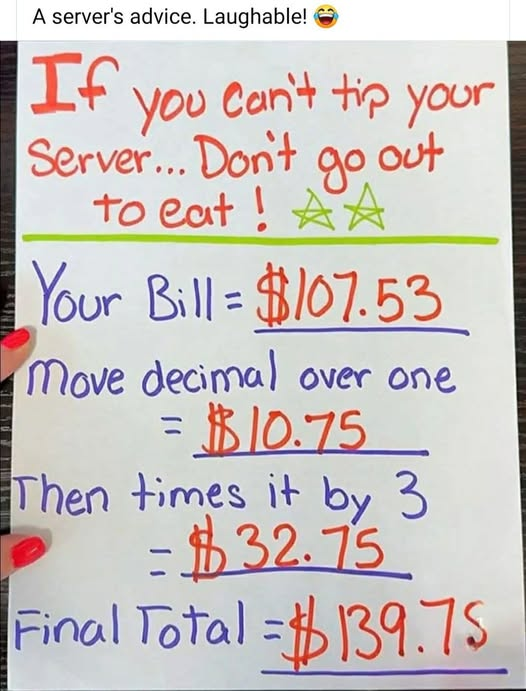 A server's advice. Laughable! 😂
If you can't tip your
Server... Don't go out
to eat!
Your Bill = $107.53
Move decimal over one
= $10.75
Then times it by 3
= $32.75
Final Total = $139.75